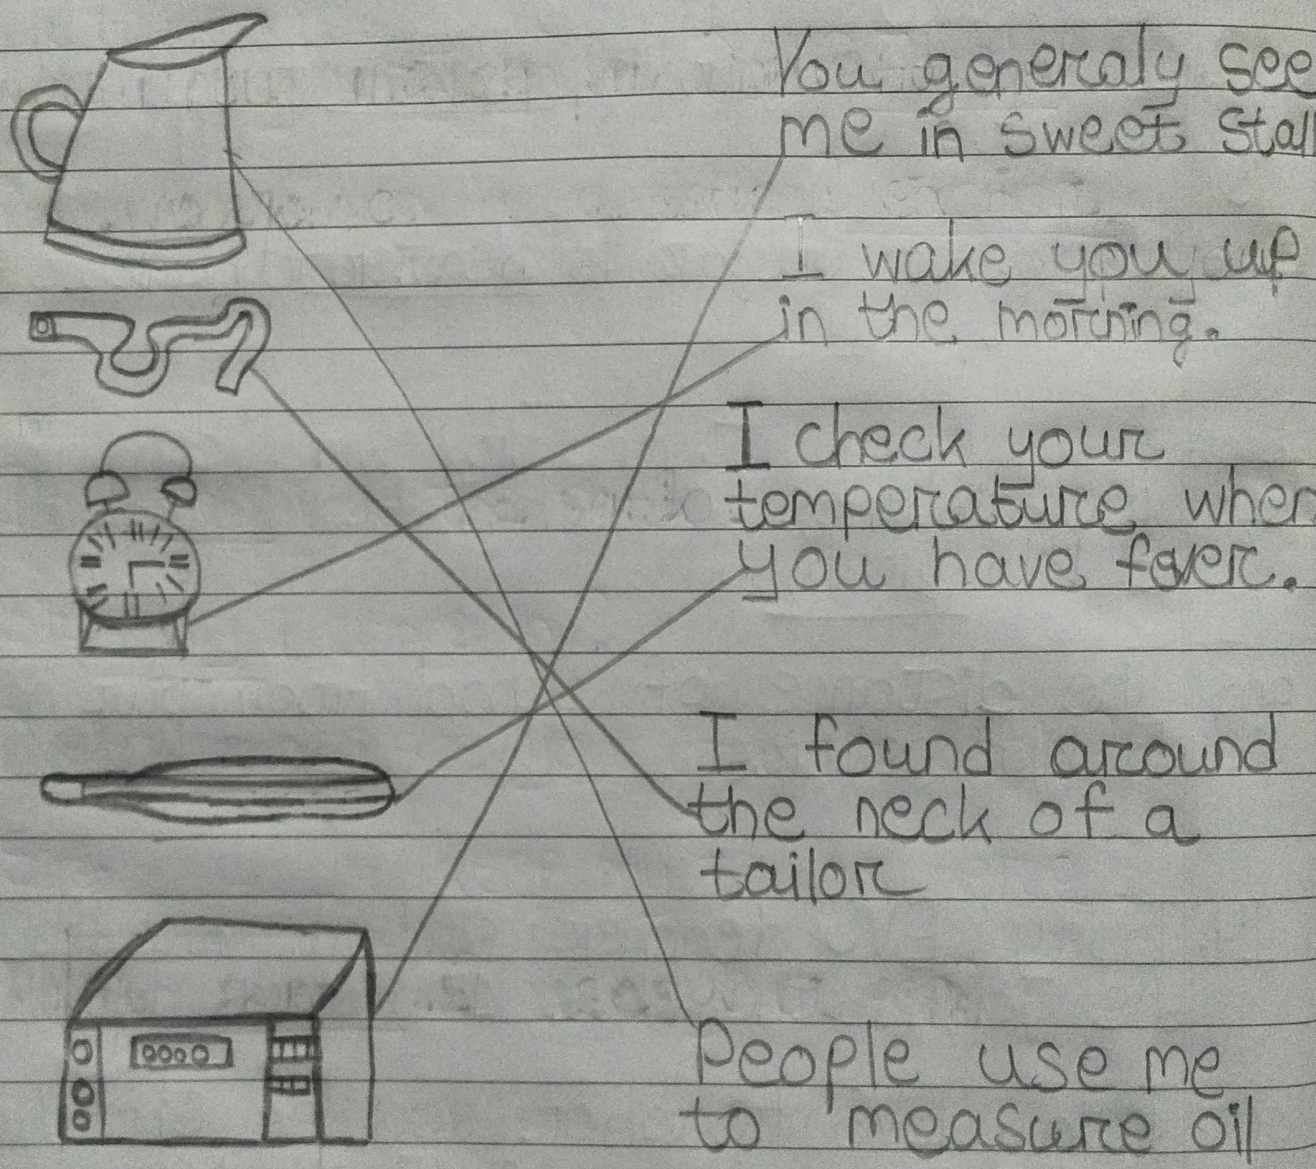 You generaly see
me in sweet stall
I wake you up
in the morning.
I check your
temperature when
you have fever.
I found around
the neck of a
tailor
People use me
to measure oil
0000